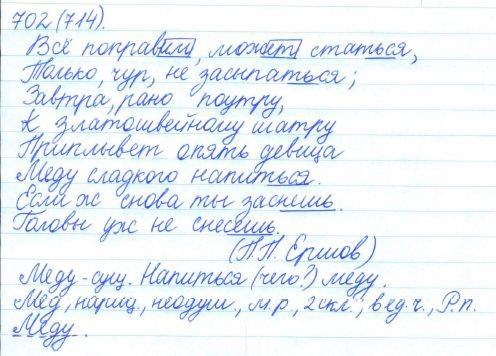 702 (714).
Всё поправим, может статься,
Только, чур, не засыпаться;
Завтра, рано поутру,
К златошвейному шатру
Приплывет опять девица
Меду сладкого напиться.
Если ж снова ты заснешь.
Головы уж не снесешь.
(П.П. Ершов)
Меду-сущ. Напиться (чего?) меду.
Мёд, нариц., неодуш., м.р., 2скл.; в ед.ч., Р.п.
Меду.